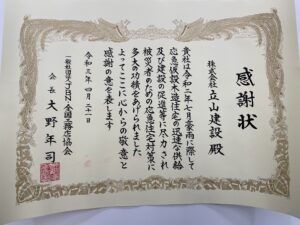 感謝状
株式会社 立山建設 殿
貴社は令和二年七月豪雨に際して
応急仮設木造住宅の迅速な供給
及び建設の促進等に尽力され
被災者のための応急住宅対策に
多大の功績をあげられました
よってここに心からの敬意と
感謝の意を表します
令和三年四月二十一日
一般社団法人JBN・全国工務店協会
会長 大野年司